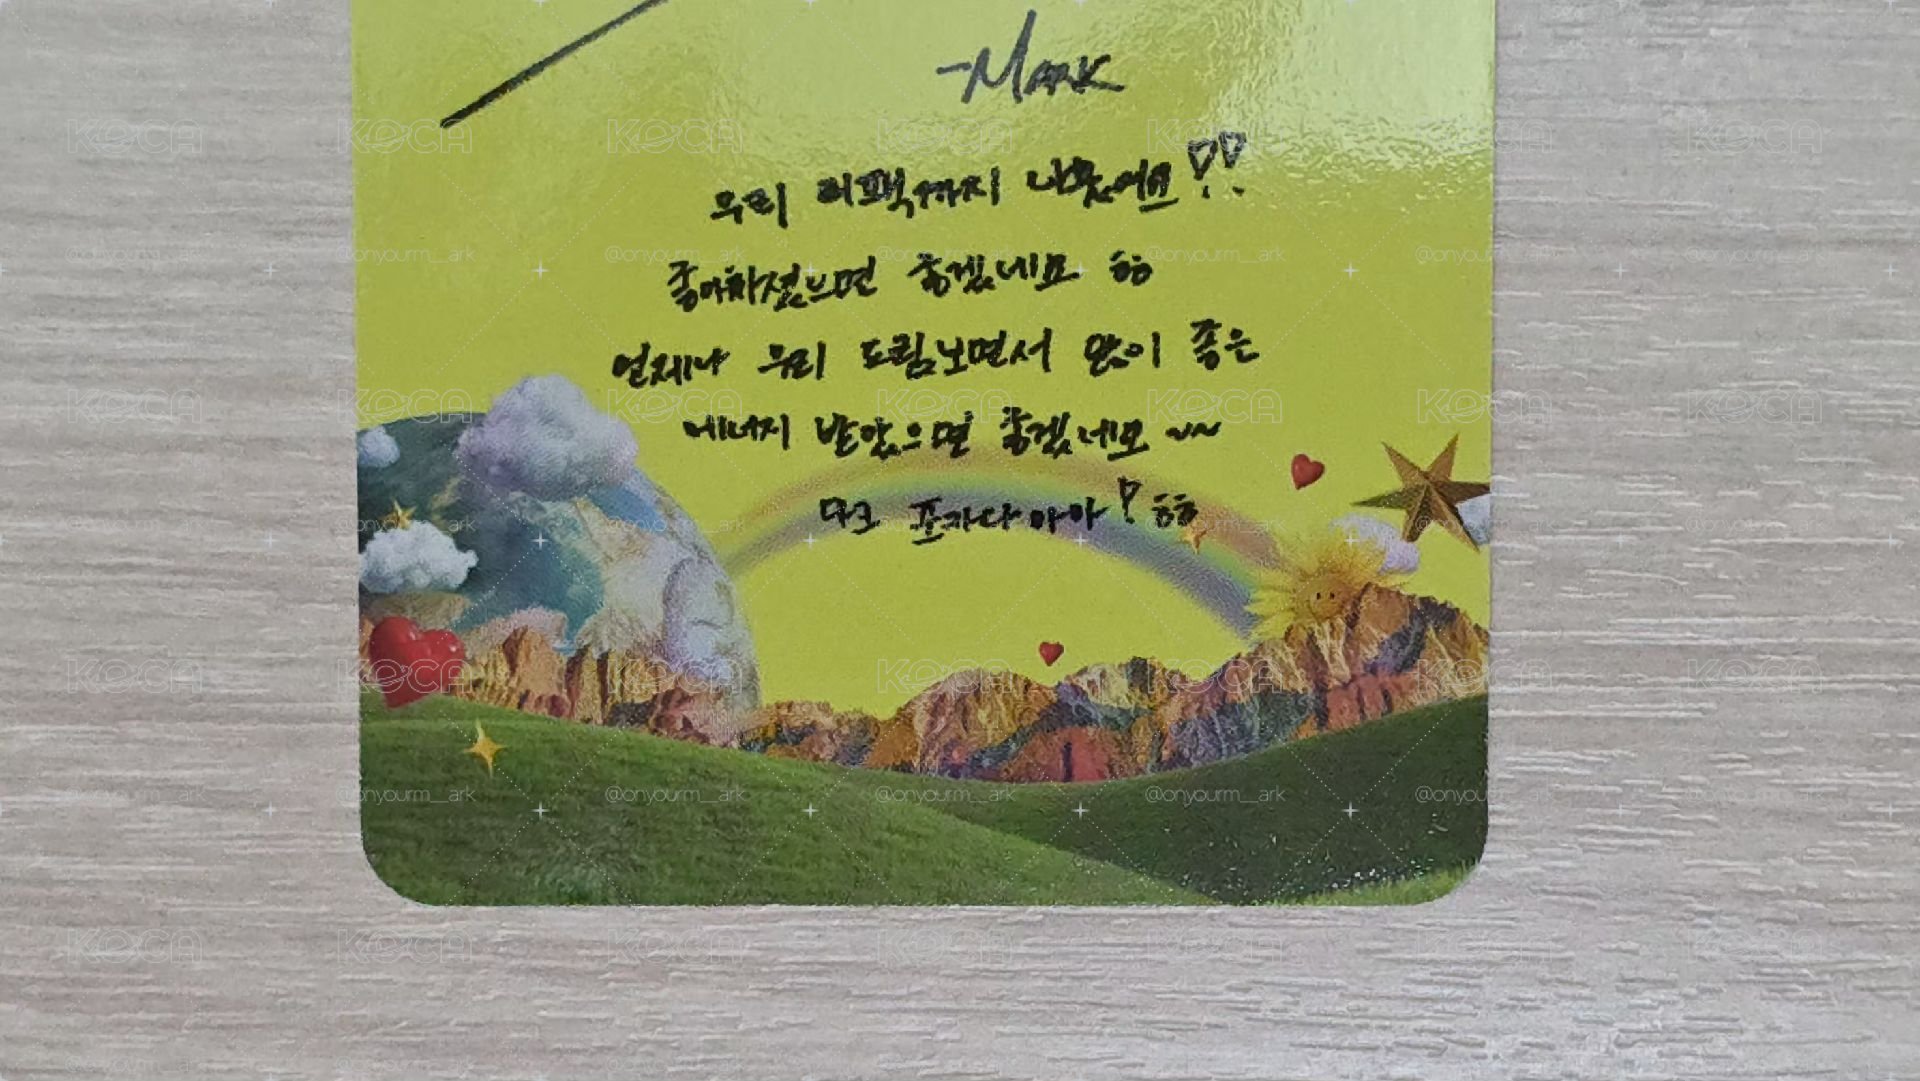 -Mark
우리 리팩까지 나왔어요!!
좋아하셨으면 좋겠네요 ㅎㅎ
언제나 우리 드림보면서 많이 좋은
에너지 받았으면 좋겠네요 ~~
마크 포카다아아! ㅎㅎ
KOCA
@onyourm__ark